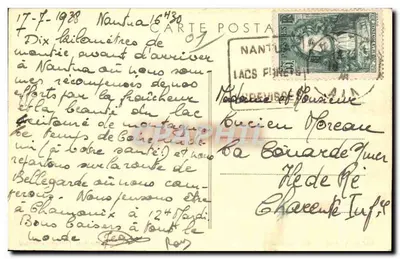 17-7-1938 Nantua 16h30
CARTE POSTA
Dix kilomètres de
montée, avant d'arriver
à Nantua où nous som-
mes récompensés de nos
efforts par la fraîcheur
et la beauté du lac
de
le temps de
(à votre santé) et nous
repartons sur la route de
Bellegarde où nous cam-
perons. Nous pensons être
à Chamonix à 12h Mardi.
Bons baisers à tout le
monde
NANTUA
LACS FORETS
Madame et Monsieur
Lucien Moreau
La Couarde s/mer
Ile de Ré
Charente Infre